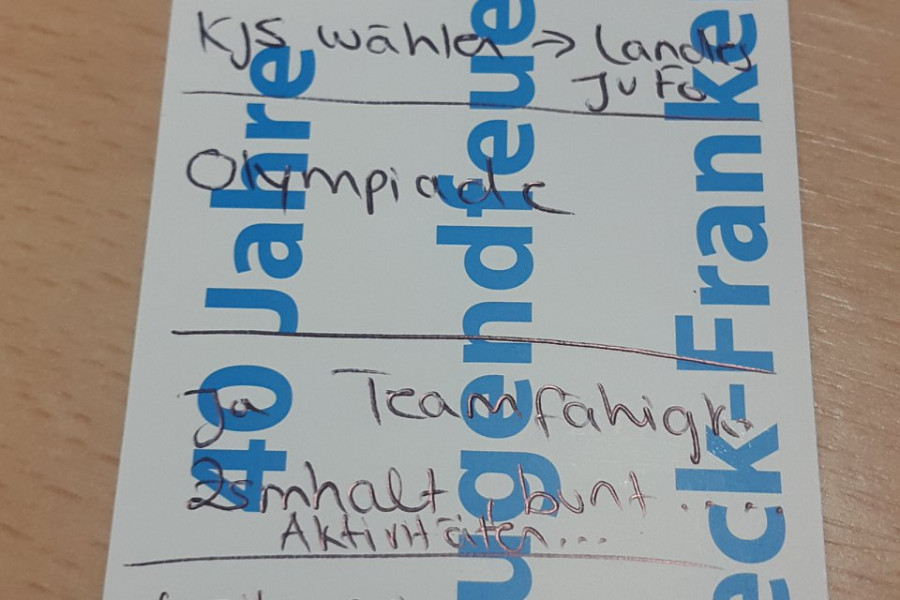 KJS wählen → Landes
JuFo
Olympiade
Ja Teamfähigk.
Zsmhalt, bunt ....
Aktivitäten...
40 Jahre
ugendfeue
eck-Franke